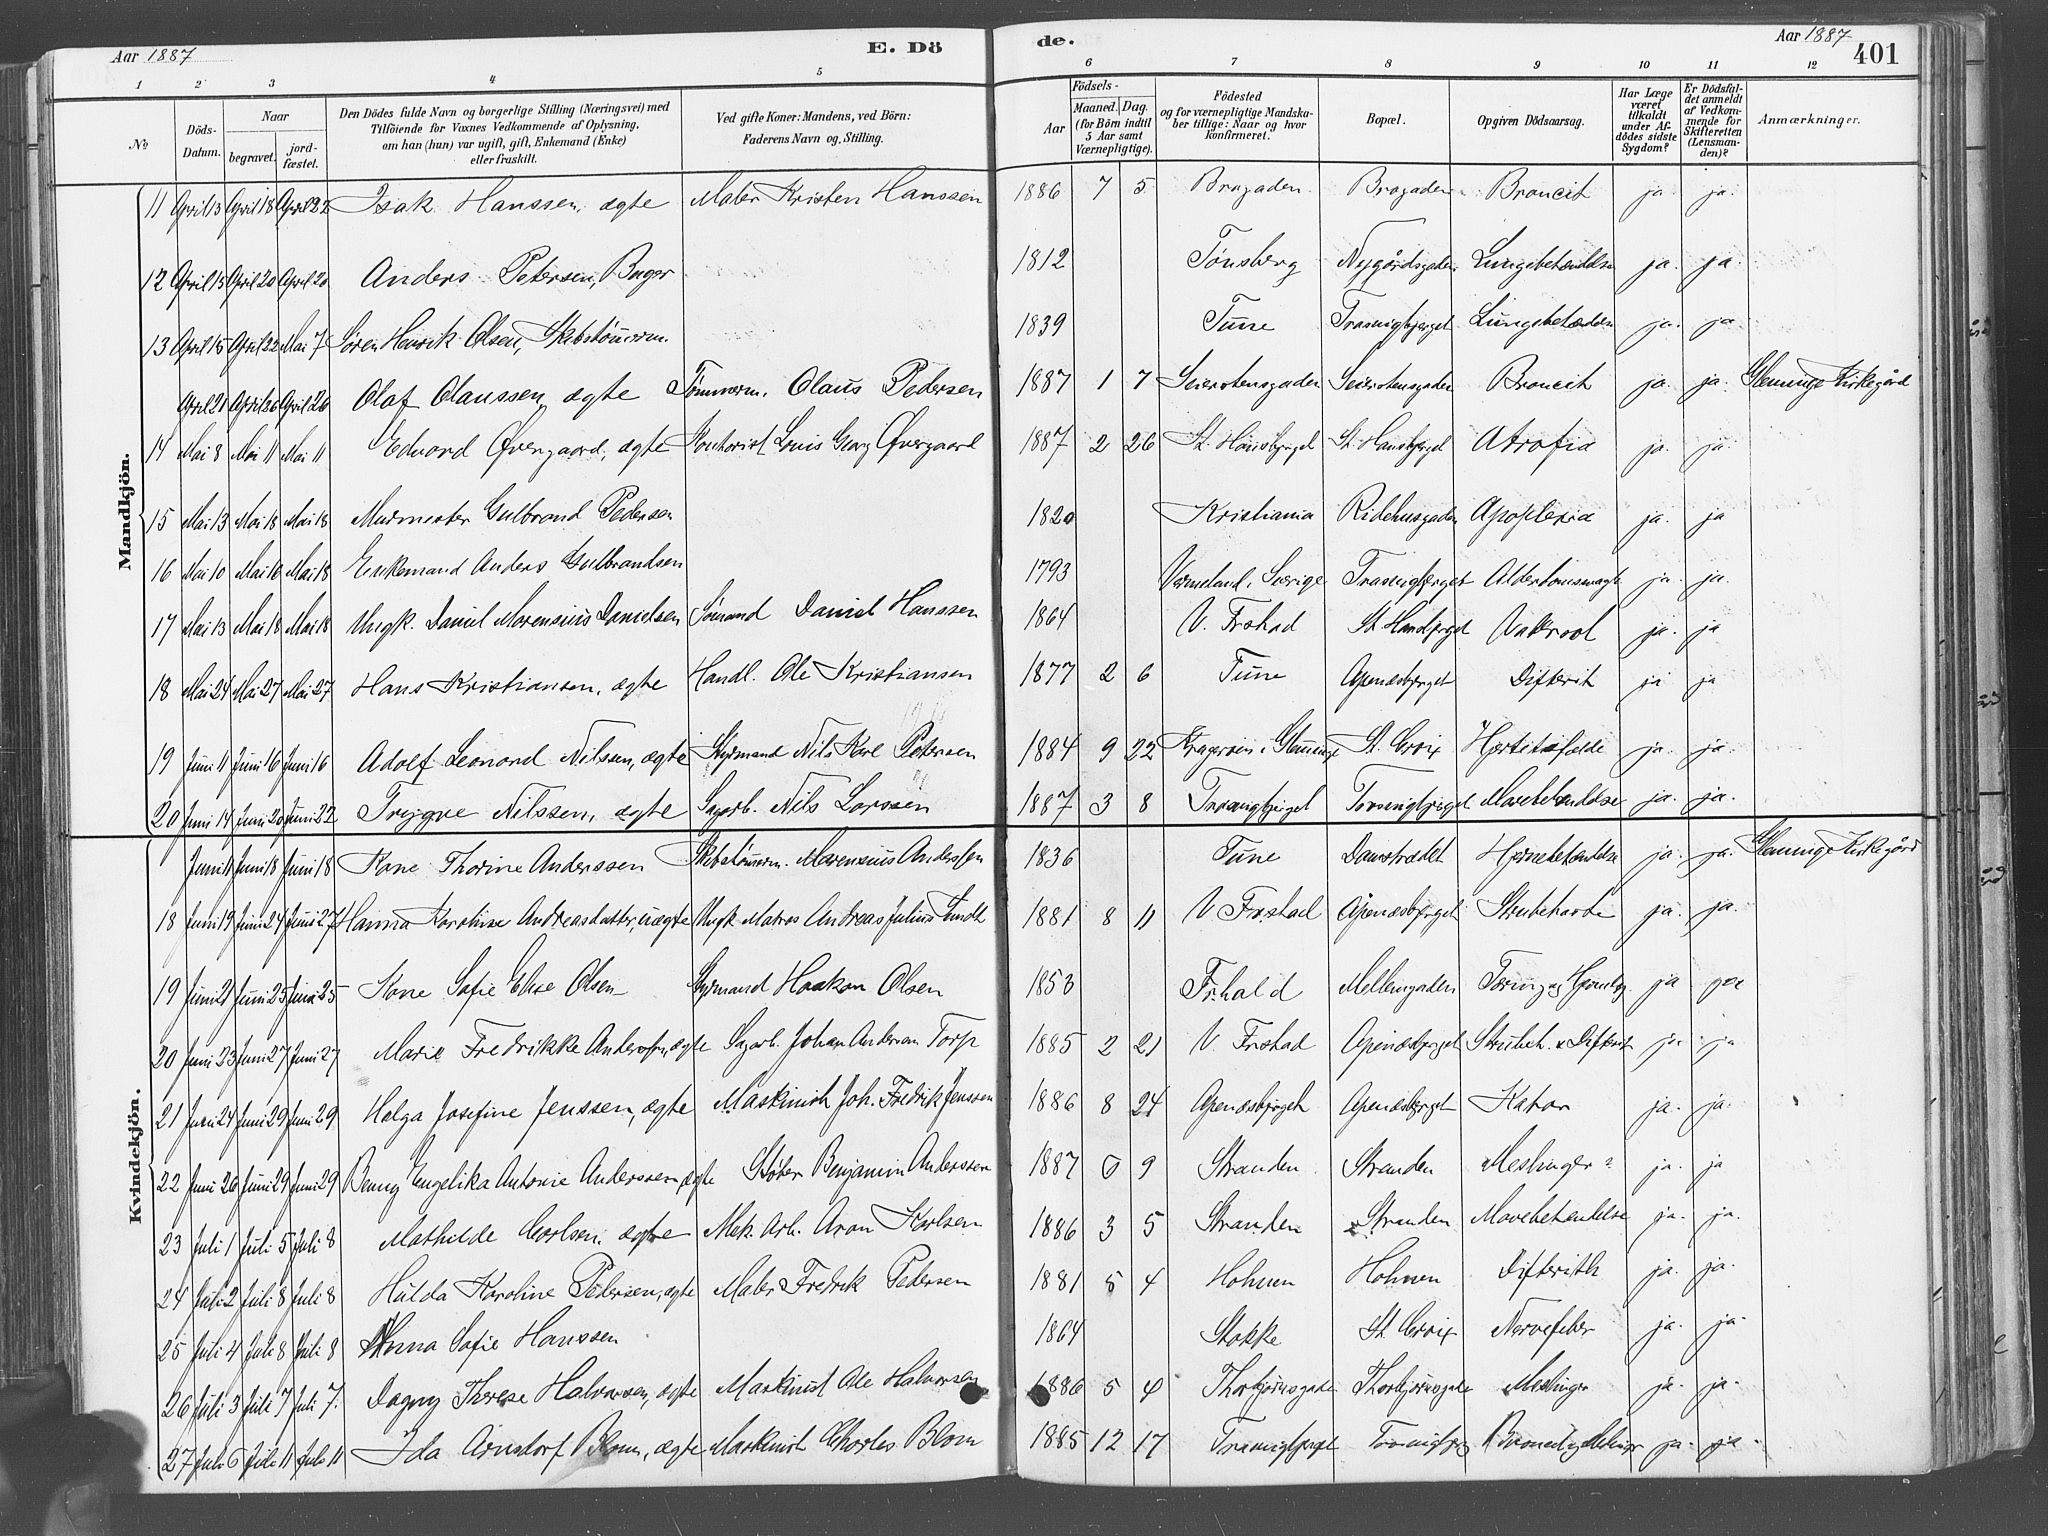 Aar 1887 E. Dö de. Aar 1887 401
1 2 3 4 5 6 7 8 9 10 11 12
№ Döds-Datum. Naar begravet. jord-fæstet. Den Dödes fulde Navn og borgerlige Stilling (Næringsvei) med Tilföiende for Voxnes Vedkommende af Oplysning, om han (hun) var ugift, gift, Enkemand (Enke) eller fraskilt. Ved gifte Koner: Mandens, ved Börn: Faderens Navn og Stilling. Födsels- Aar Maaned. Dag. (for Börn indtil 5 Aar samt Værnepligtige). Födested og for værnepligtige Mandskaber tillige: Naar og hvor konfirmeret. Bopæl. Opgiven Dödsaarsag. Har Læge været tilkaldt under Afdödes sidste Sygdom? Er Dödsfaldet anmeldt af Vedkommende for Skifteretten (Lensmanden)? Anmærkninger.
Mandkjön.
11 April 13 April 18 April 22 Isak Hanssen, ægte Maler Kristen Hanssen 1886 7 5 Brogaden Brogaden Broncit ja. ja.
12 April 15 April 20 April 20 Anders Petersen, Bager 1812 Tønsberg Nygårdsgaden Lungebetændelse ja. ja.
13 April 15 April 22 Mai 7 Søren Henrik Olsen, Skibstømerm. 1839 Tune Trosvigbjerget Lungebetændelse ja. ja
April 21 April 26 April 26 Olaf Olaussen, ægte Tømmerm. Olaus Pedersen 1887 1 7 Seierstensgaden Seierstensgaden Broncit ja. ja. Glemminge Kirkegård
14 Mai 8 Mai 11 Mai 11 Edvard Øvergaard, ægte Kontorist Louis Georg Øvergaard 1887 2 26 St. Hansbjerget St. Hansbjerget Atrofia ja. ja.
15 Mai 13 Mai 18 Mai 18 Murmester Gulbrand Pedersen 1820 Kristiania Ridehusgaden Apoplexia ja. ja
16 Mai 10 Mai 16 Mai 18 Enkemand Anders Gulbrandsen 1793 Vermeland, Sverige Trosvigbjerget Alderdomssvagh. ja. ja.
17 Mai 13 Mai 18 Mai 18 Ungk. Daniel Marensius Danielsen Sømand Daniel Hanssen 1864 V. Frstad St. Hansbjerget ja. ja
18 Mai 24 Mai 27 Mai 27 Hans Kristiansen, ægte Handl. Ole Kristiansen 1877 2 6 Tune Apenæsbjerget Difterit ja ja
19 Juni 11 Juni 16 Juni 16 Adolf Leonard Nilssen, ægte Styrmand Nils Karl Petersen 1884 9 22 Kragerøen i Glemminge St. Croix ja. ja.
20 Juni 14 Juni 20 Juni 22 Trygve Nilssen, ægte Sagarb. Nils Larssen 1887 3 8 Trosvigbjerget Trosvigbjerget Mavebetændelse ja. ja.
Kvindekjön.
Juni 11 Juni 18 Juni 18 Kone Thorine Anderssen Skibstømerm. Marensius Anderssen 1836 Tune Damstrædet Hjernebetændelse ja. ja. Glemminge Kirkegård
18 Juni 19 Juni 24 Juni 27 Hanna Karoline Andreasdatter, uægte Ungk. Matros Andreas Julius Lundt 1881 8 11 V. Frstad Apenæsbjerget Strubehoste ja. ja.
19 Juni 21 Juni 25 Juni 25 Kone Sofie Elise Olsen Styrmand Haakon Olsen 1853 Fr.hald Mellemgaden Tæring og ja ja
20 Juni 23 Juni 27 Juni 27 Marie Fredrikke Anderssen, ægte Sagarb. Johan Andersen Torp 1885 2 21 V. Frstad Apenæsbjerget Strubeh. & Difterit ja. ja
21 Juni 24 Juni 29 Juni 29 Helga Josefine Jenssen, ægte Maskinist Joh. Fredrik Jenssen 1886 8 24 Apenæsbjerget Apenæsbjerget Katar ja. ja.
22 Juni 26 Juni 29 Juni 29 Benny Engelika Antonie Anderssen, ægte Støber Benjamin Anderssen 1887 6 9 Stranden Stranden Meslinger ja. ja
23 Juli 1 Juli 5 Juli 8 Mathilde Carlsen, ægte Mek. Arb. Aron Karlsen 1886 3 5 Stranden Stranden Mavebetændelse ja. ja.
24 Juli 2 Juli 8 Juli 8 Hulda Karoline Pedersen, ægte Maler Fredrik Pedersen 1881 5 4 Holmen Holmen Difterith ja. ja.
25 Juli 4 Juli 8 Juli 8 Anna Sofie Hanssen 1864 Stokke St. Croix Nervefeber ja. ja.
26 Juli 3 Juli 7 Juli 7. Dagny Therese Halvorsen, ægte Maskinist Ole Halvorsen 1886 5 4 Thorbjørnsgade Thorbjørnsgade Meslinger ja. ja.
27 Juli 6 Juli 11 Juli 11 Ida Arnsdorf Blom, ægte Maskinist Charles Blom 1885 12 17 Trosvigbjerget Trosvigbjerg ja. ja.